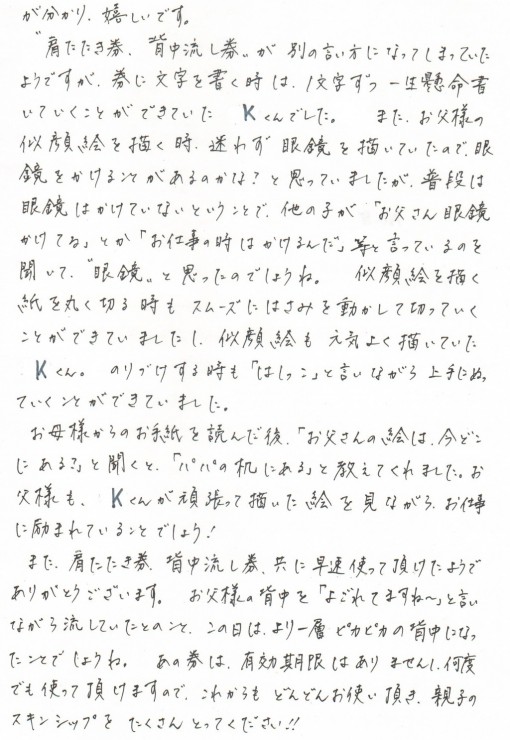 が分かり、嬉しいです。
〝肩たたき券、背中流し券〟が 別の言い方になってしまっていた
ようですが、券に文字を書く時は、1文字ずつ一生懸命書
いていくことができていた Kくんでした。 また、お父様の
似顔絵を描く時、迷わず 眼鏡を描いていたので、眼
鏡をかけることがあるのかな?と思っていましたが、普段は
眼鏡はかけていないということで、他の子が、「お父さん眼鏡
かけてる」とか「お仕事の時はかけるんだ」等と言っているのを
聞いて、〝眼鏡〟と思ったのでしょうね。 似顔絵を描く
紙を丸く切る時も スムーズにはさみを動かして切っていく
ことができていましたし、似顔絵も 元気よく描いていた
Kくん。 のりづけする時も「はしっこ」と言いながら上手にぬっ
ていくことができていました。
お母様からのお手紙を読んだ後、「お父さんの絵は、今どこ
にある?」と聞くと、「パパの机にある」と教えてくれました。お
父様も、Kくんが頑張って描いた絵を見ながら、お仕事
に励まれていることでしょう!
また、肩たたき券、背中流し券、共に早速使って頂けたようで
ありがとうございます。 お父様の背中を「よごれてますね〜」と言い
ながら流していたとのこと、この日は、より一層ピカピカの背中になっ
たことでしょうね。 あの券は、有効期限はありませんし、何度
でも使って頂けますので、これからも どんどんお使い頂き、親子の
スキンシップを たくさん とってください!!